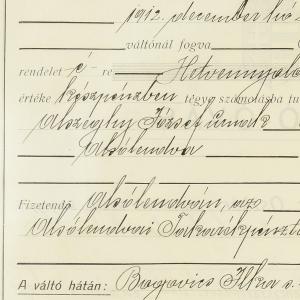 1912. december hó
váltónál fogva
rendelet é - re Hetvennyolc
értéke készpénzben tégye számolásba
Alszeghy József úrnak
Alsólendva
Fizetendő Alsólendván, az
Alsólendvai Takarékpénztá
A váltó hátán: Bogovics Ilka s.